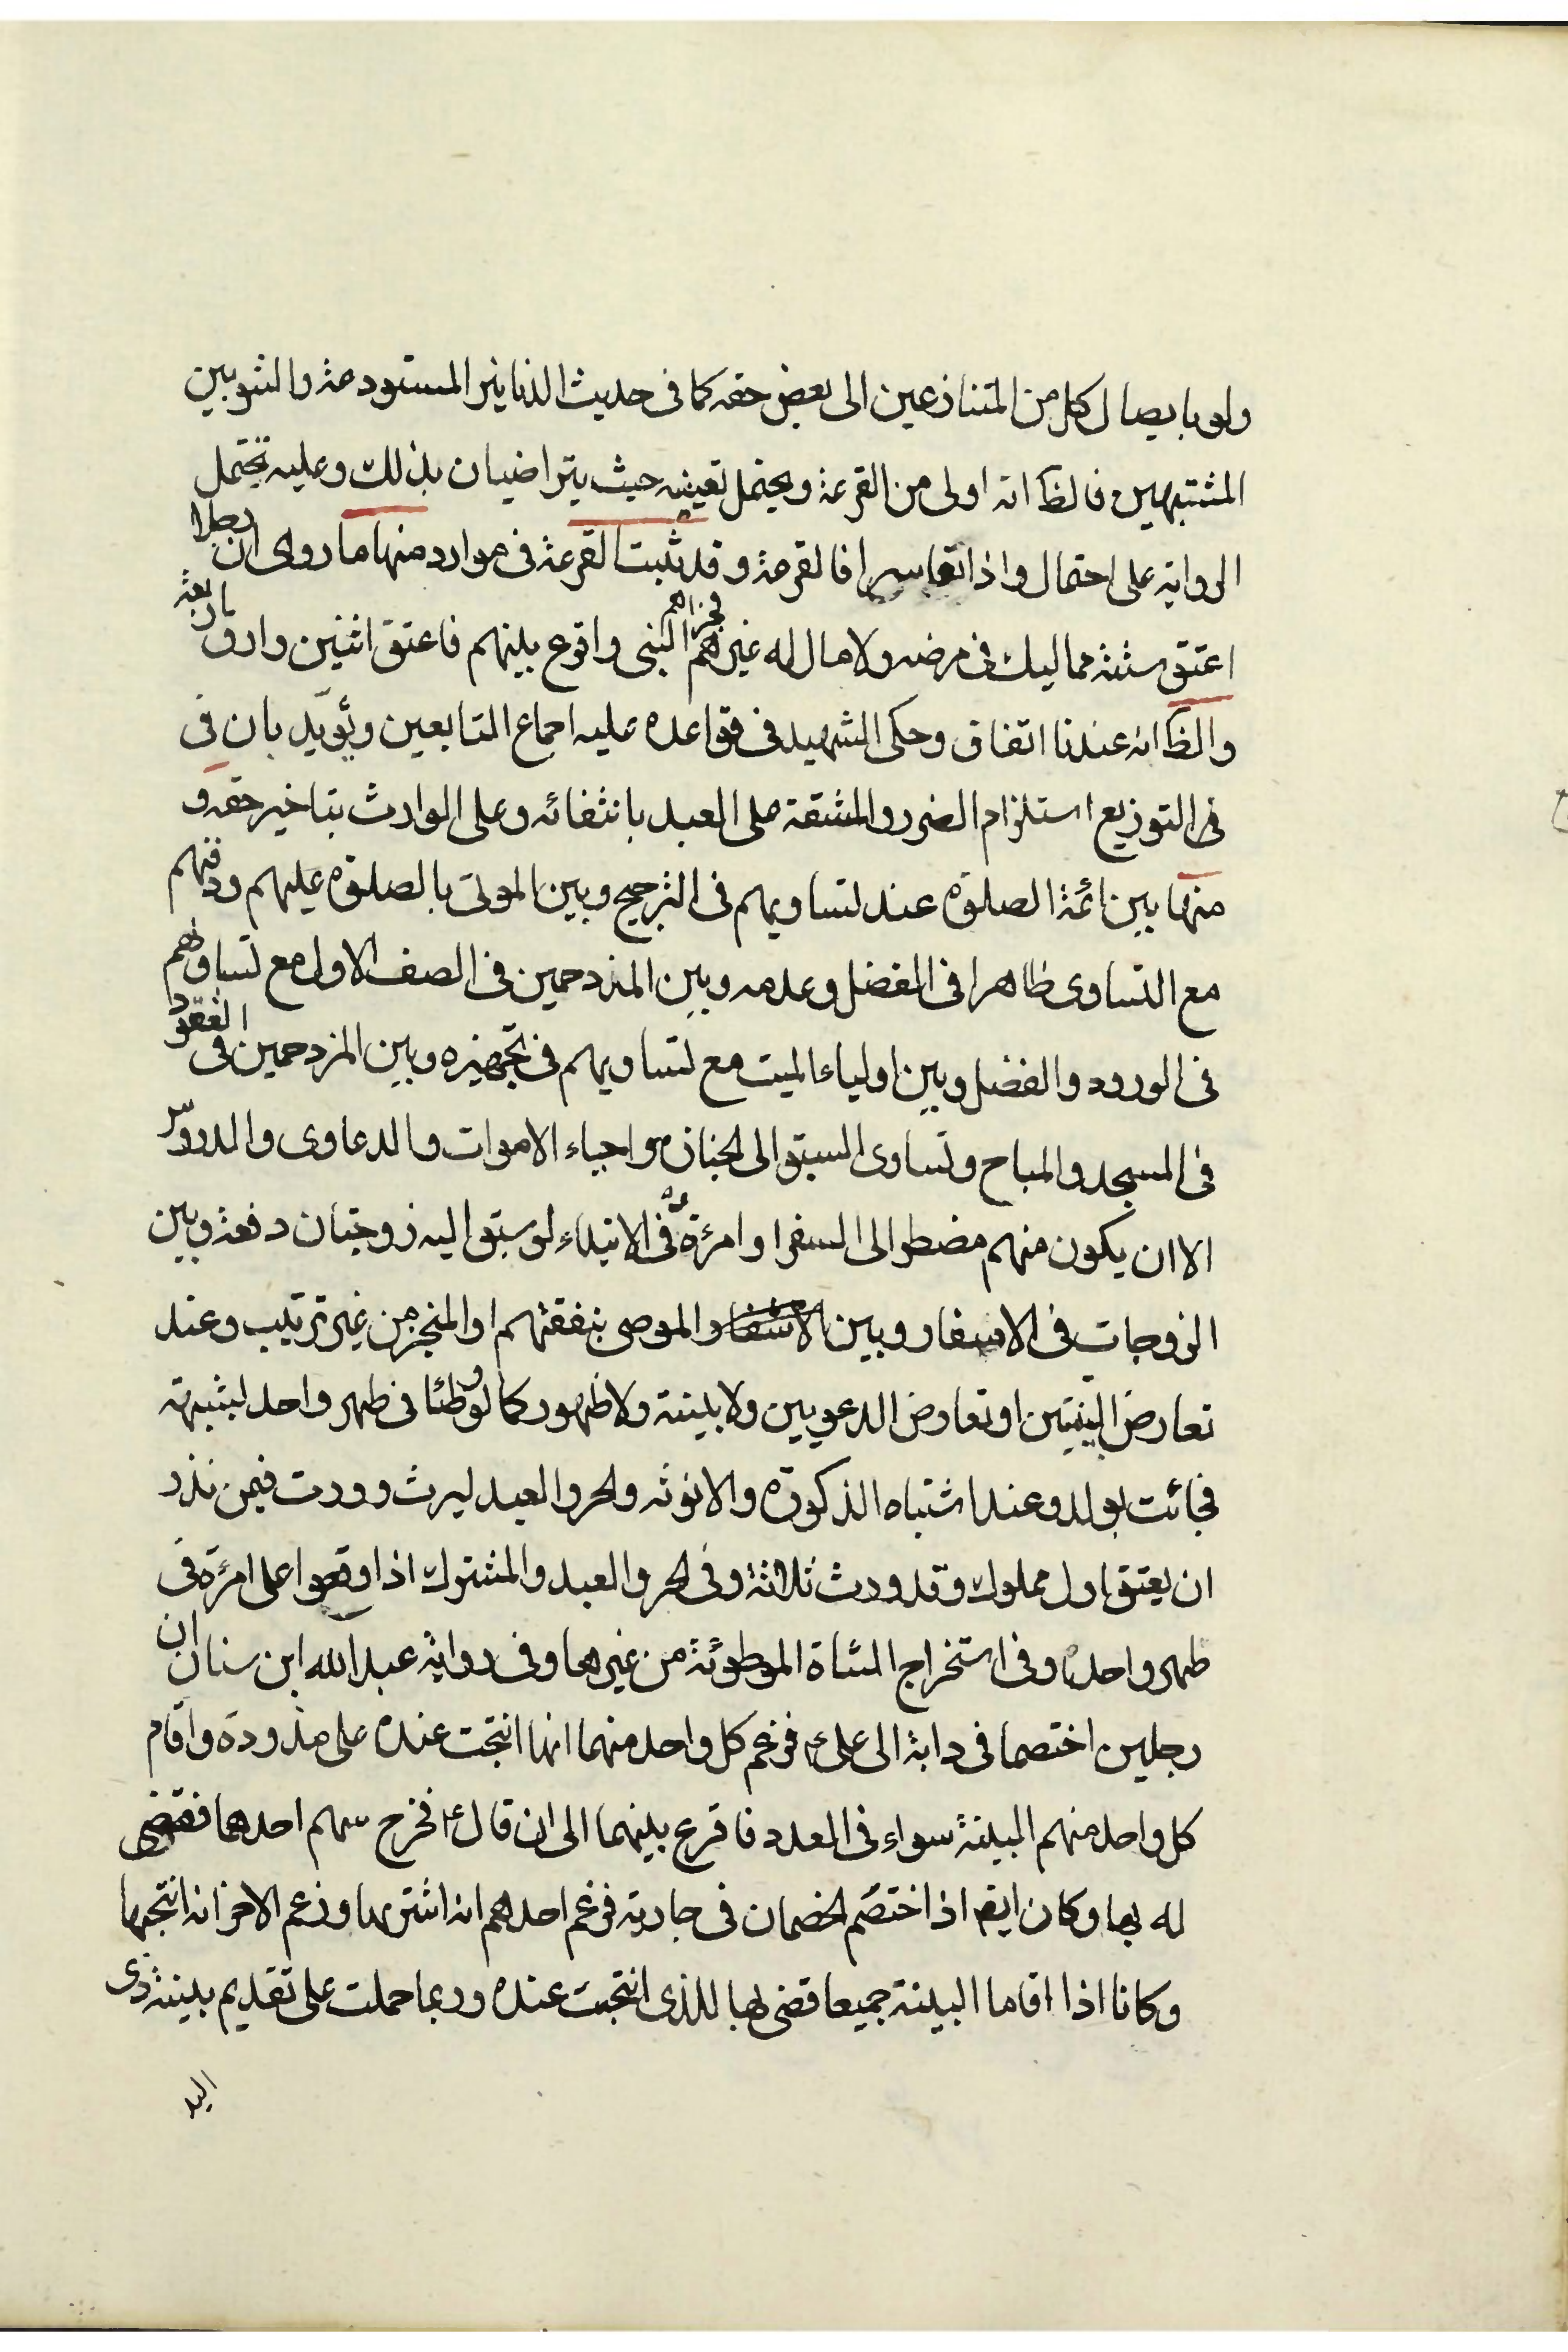 ولو بايصال كل من المتنازعين الى بعض حقه كما فى حديث الدنانير المستودعة والثوبين
المشتبهين فالظ انه اولى من القرعة ويحتمل تعينه حيث يتراضيان بذلك وعليه يحتمل
الرواية على احتمال واذا تعاسرا فالقرعة وقد ثبت القرعة فى موارد منها ما روى ان رجلا
اعتق ستة مماليك فى مرضه ولا مال له غيرهم فجزاهم النبى واقرع بينهم فاعتق اثنين وارق اربعة
والظ انه عندنا اتفاق وحكى الشهيد فى قواعده عليه اجماع التابعين ويؤيد بان فى
فى التوزيع استلزام الضرر والمشقة على العبد بانتفائه وعلى الوارث بتاخير حقه و
منها بين ائمة الصلوة عند تساويهم فى الترجيح وبين الموتى بالصلوة عليهم ودفنهم
مع التساوى ظاهرا فى الفضل وعدمه وبين المزدحمين فى الصف الاول مع تساوهم
فى الورود والفضل وبين اولياء الميت مع تساويهم فى تجهيزه وبين المزدحمين فى القعود
فى المسجد والمباح وتساوى السبق الى الجنازة واحياء الاموات والدعاوى والدروس
الا ان يكون منهم مضطر الى السفر او امرئة وفى الابتداء لو سبق اليه زوجتان دفعة وبين
الزوجات فى الاسفار وبين الموصى بنفقتهم او المنجز من غير ترتيب وعند
تعارض البينتين او تعارض الدعويين ولا بينة ولا ظهور كما لو وطئا فى طهر واحد لشبهة
فجائت بولد وعند اشتباه الذكورة والانوثة والحر والعبد ليرث ووردت فيمن نذر
ان يعتق اول مملوك وقد ورث ثلاثة وفى الحر والعبد والمشترك اذا وقعوا على امرئة فى
طهر واحد وفى استخراج الشاة الموطوئة من غيرها وفى رواية عبد الله ابن سنان ان
رجلين اختصما فى دابة الى على ع فزعم كل واحد منهما انها انتجت عنده على مذوده واقام
كل واحد منهم البينة سواء فى العدد فاقرع بينهما الى ان قال ع فخرج سهم احدهما فقضى
له بها وكان ايضا اذا اختصم الخصمان فى جارية فزعم احدهم انه اشتريها وزعم الاخر انه انتجها
وكانا اذا اقاما البينة جميعا قضى لها للذى انتجت عنده وربما حملت على تقديم بينة ذى
اليد